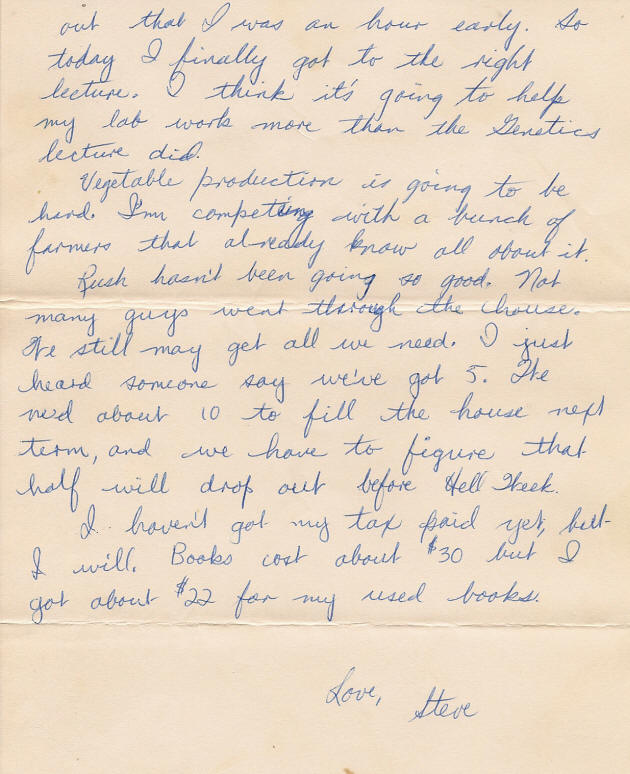 out that I was an hour early. So
today I finally got to the right
lecture. I think it's going to help
my lab work more than the Genetics
lecture did.
Vegetable production is going to be
hard. I'm competing with a bunch of
farmers that already know all about it.
Rush hasn't been going so good. Not
many guys went through the house.
We still may get all we need. I just
heard someone say we've got 5. We
need about 10 to fill the house next
term, and we have to figure that
half will drop out before Hell Week.
I haven't got my tax paid yet, but
I will. Books cost about $30 but I
got about $22 for my used books.
Love,
Steve